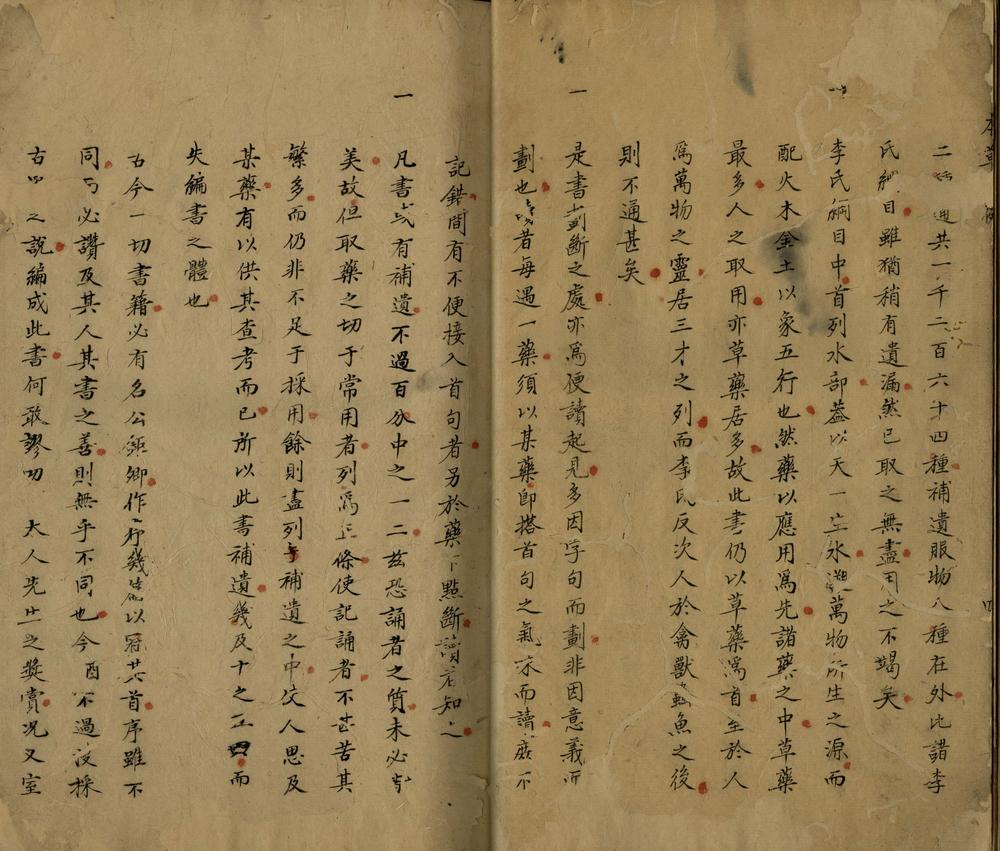 本草 四
二 共一千二百六十四種補遺服物八種在外比諸李
氏綱目雖猶稍有遺漏然已取之無盡用之不竭矣
李氏綱目中首列水部蓋以天一生水 萬物所生之源而
配火木金土以象五行也然藥以應用爲先諸藥之中草藥
最多人之取用亦草藥居多故此書仍以草藥爲首至於人
爲萬物之靈居三才之列而李氏反次人於禽獸 魚之後
則不通甚矣
一
是書劃斷之處亦爲便讀起見多因字句而劃非因意義所
劃也 者每遇一藥須以某藥即搭首句之氣味而讀庶不
記錯間有不便接入首句者另於藥下點斷讀者知之
一
凡書 有補遺不過百分中之一二兹恐誦者之質未必皆
美故但取藥之切于常用者列爲正條使記誦者不甚苦其
繁多而仍非不足于採用餘則盡列 補遺之中佼人思及
某藥有以供其查考而已所以此書補遺幾及十之三四而
失編書之體也
古今一切書籍必有名公 卿作 幾 以冠其首序雖不
同 必讚及其人其書之善則無乎不同也今酉不過 採
古 之説編成此書何敢謬叨 大人先 之奬賞况又室